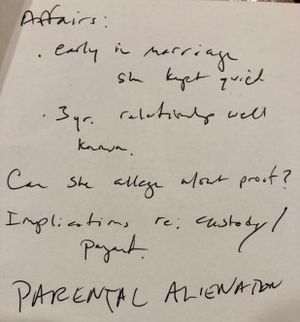 Affairs:
. early in marriage
she kept quiet
. 3 yr. relationship well
known.
Can she allege w/out proof?
Implications re: custody/
payment.
PARENTAL ALIENATION